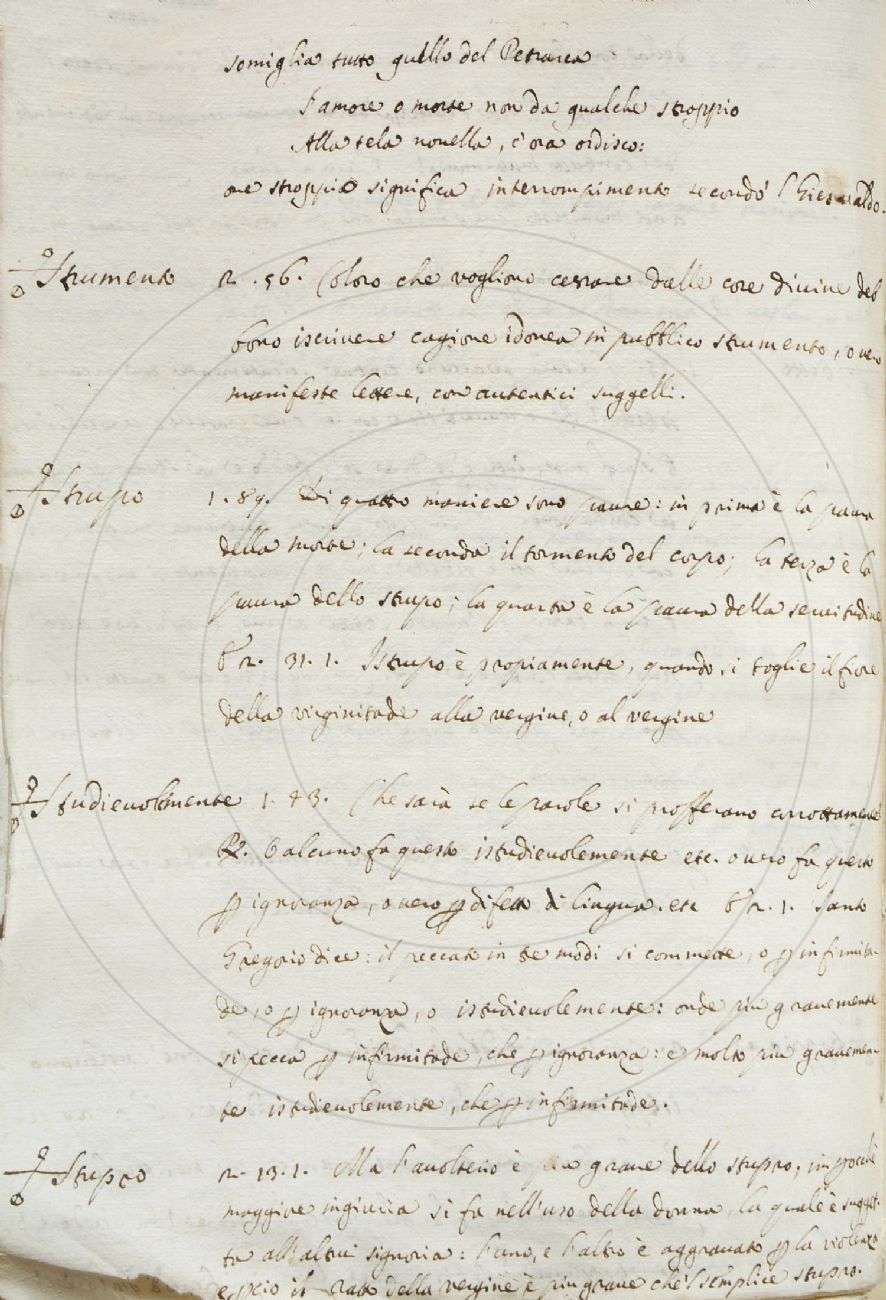 somiglia tutto quello del Petrarca
S'amore o morte non da qualche stroppio
Alla tela novella, c'ora ordisco:
ove stroppio significa interrompimento secondo 'l Giesualdo.
Strumento 2. 56. Coloro che vogliono cessare dalle cose divine deb
bono iscrivere cagione idonea in pubblico strumento, o vero
manifeste lettere, con autentici suggelli.
Strupo 1. 89. Di quatto maniere sono paure: in prima è la paura
della morte; la seconda il tormento del corpo; la terza è la
paura dello strupo; la quarta è la paura della servitudine
E 2. 31. 1. Istrupo è propiamente, quando si toglie il fiore
della virginitade alla vergine, o al vergine
Studievolemente 1. 43. Che sarà se le parole si profferano corrottamente
R. S'alcuno fa questo istudievolemente etc. o vero fa questo
ꝑ ignoranza, o vero ꝑ difetto di lingua. etc E 2. 1. Santo
Gregorio dice: il peccato in tre modi si commette, o ꝑ infirmita-
de, o ꝑ ignoranza, o istudievolemente: onde più gravemente
si pecca ꝑ infirmitade, che ꝑ ignoranza: e molto più gravemen-
te istudievolemente, che ꝑ infirmitade.
Stupro 2. 13. 1. Ma l'avolterio è più grave dello stupro, imꝑocchè
maggiore ingiuria si fa nell'uso della donna, la quale è sugget-
ta all'altrui signoria: l'uno, e l'altro è aggravato ꝑ la violenza
e ꝑciò il ratto della vergine è più grave che 'l semplice stupro.